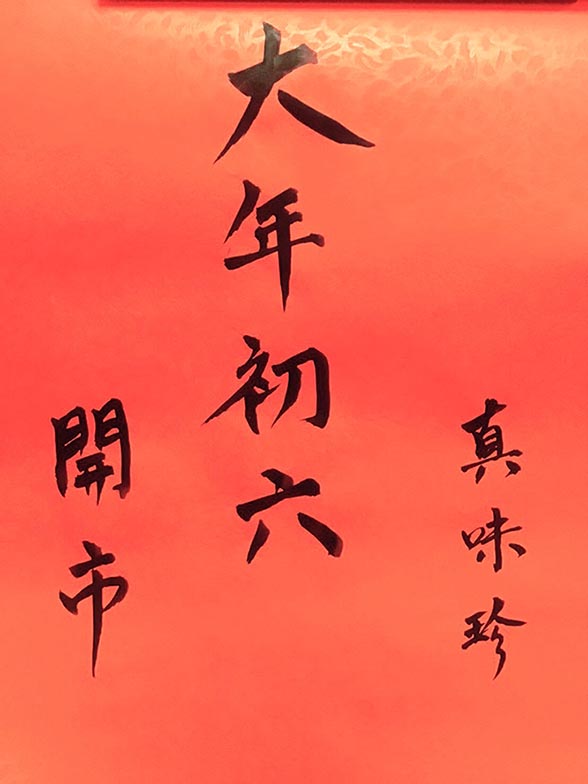 真味珍
大年初六
開市